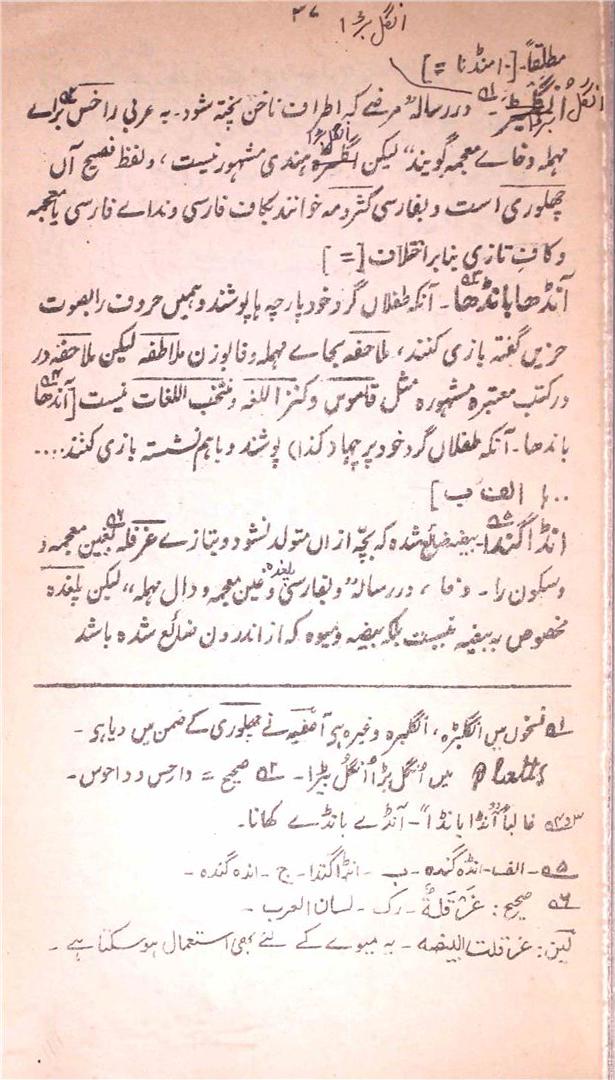 ۳۷
انگل بڑا
مطلقاً۔ [ـ امنڈنا =]
انگل بڑا ۵۱۔ در رسالہ "مرضے کہ اطراف ناخن پختہ شود۔ بہ عربی راخس ۵۲ براے
مہملہ و خاے معجمہ گویند" لیکن انگل بڑا ہندی مشہور نیست، و لفظ فصیح آں
چھلوری است و بفارسی کثردمہ خوانند بکاف فارسی و ذاے فارسی یا معجمہ
و کافِ تازی بنا بر اختلاف [=]
آنڈھا بانڈھا ۵۳۔ آنکہ طفلاں گرد خود پارچہ ہا پوشند و ہمیں حروف را بصوت
حزیں گفتہ بازی کنند، ملاحفہ بحاے مہملہ و فا بوزن ملاطفہ لیکن ملاحفہ در
در کتب معتبرہ مشہورہ مثل قاموس و کنز اللغہ و منتخب اللغات نیست [آندھا ۵۴
باندھا۔ آنکہ طفلاں گرد خود پر چہا (کذا) پوشند و باہم نشستہ بازی کنند....
..، الف ب]
انڈا گندا ۵۵۔ بیضہ ضائع شدہ کہ بچّہ ازاں متولد نشود و بتازے غرفلہ ۵۶ بغین معجمہ و
و سکون را۔ و فا، در رسالہ "و بفارسی پلغدہ و غین معجمہ و دال مہملہ" لیکن پلغدہ
مخصوص بہ بیضہ نیست بلکہ بیضہ و میوہ کہ از اندرون ضائع شدہ باشد
۵۱ نسخوں میں انگلبڑہ، انگلہڑہ وغیرہ ہی آصفیہ نے چھلوری کے ضمن میں دیا ہی۔
Platts میں اُنگل بڑا اُنگل بیڑا۔ ۵۲ صحیح = داحس و داحوس۔
۵۳و۴ غالباً "آنڈا بانڈا"۔ آنڈے بانڈے کھانا۔
۵۵۔ الف۔ انڈہ گندہ۔ ب۔ انڈا گندا۔ ج۔ اندہ گندہ۔
۵۶ صحیح: غَرْقَلَۃٌ۔ رک۔ لسان العرب۔
لین: غرقلت البیضہ۔ یہ میوے کے لئے بھی استعمال ہو سکتا ہے۔